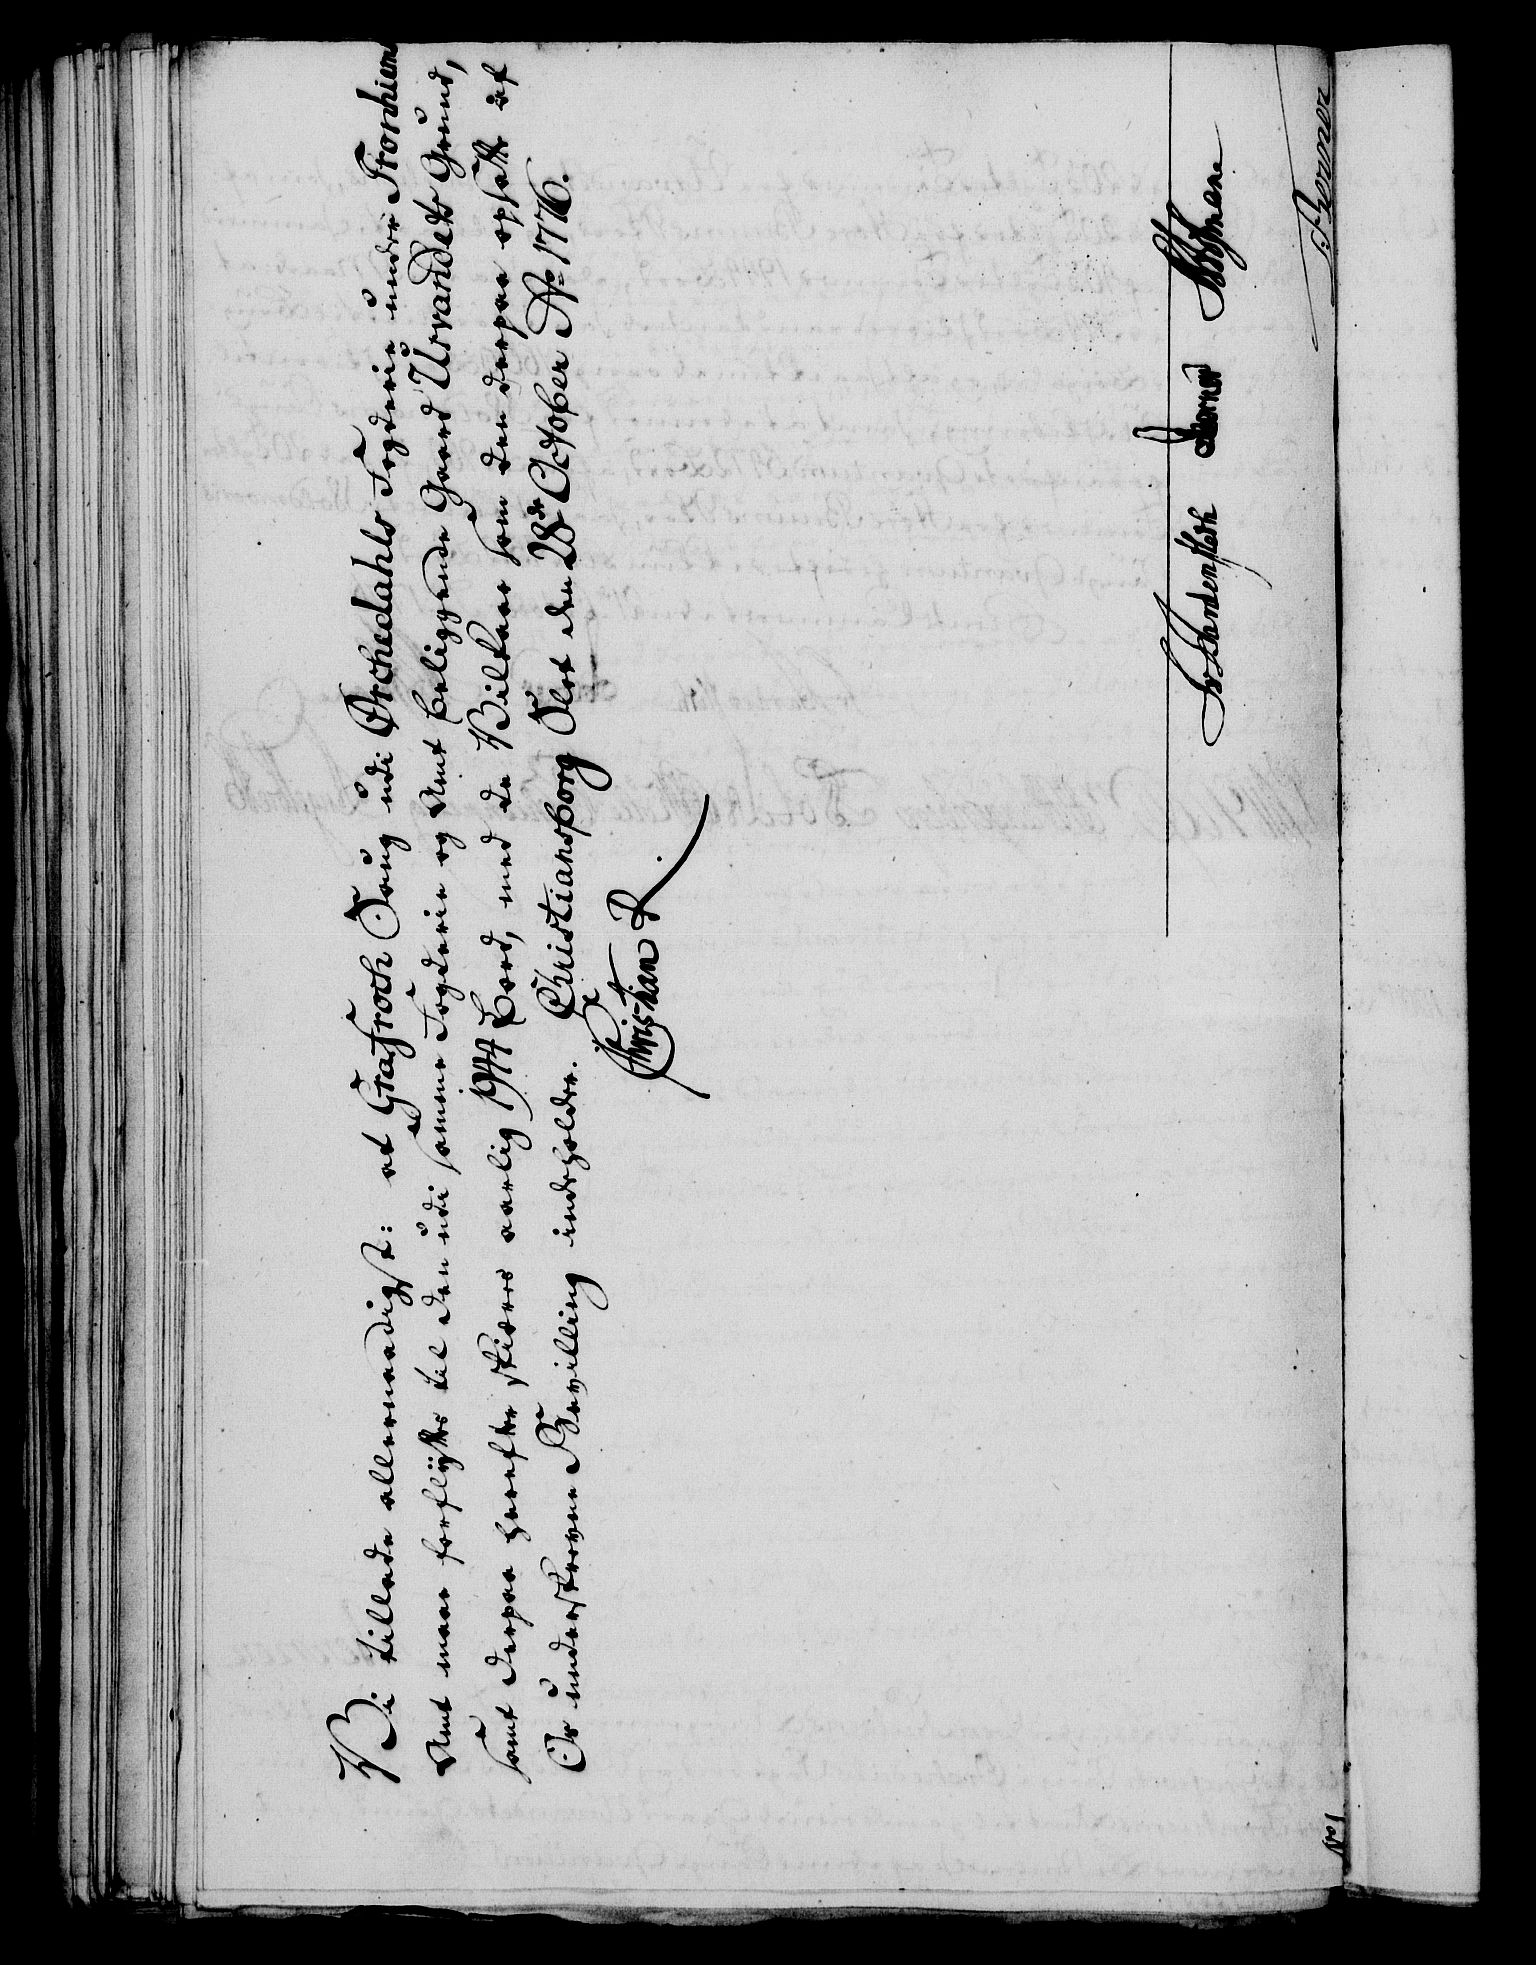 Vi tillade allernaadigst: at Grafroch Saug udi Orchedahls Fogderie under Tronhiems
Amt maae forflyttes til den udi samme Fogderie og Amt beliggende Gaard Urvandets Grund,
samt derpaa herefter skiæres aarlig 1944 Bord, med de Vilkaar som den derpaa opsatte af
Os underskrevne Bevilling indeholder. Christiansborg Slot den 28de October Ao 1776.
Christian R.
Schardenfleth